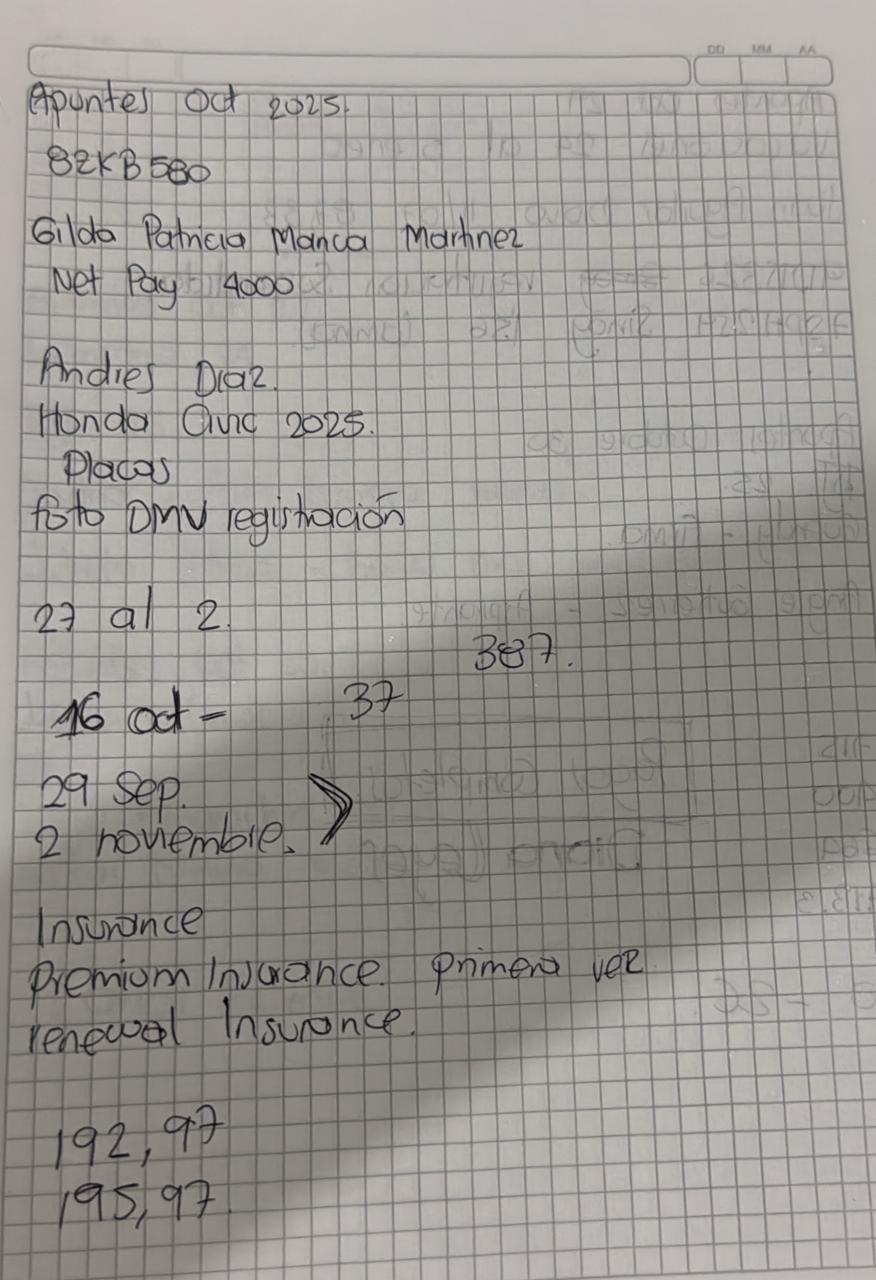 DD MM AA
Apuntes Oct 2025.
82KB580
Gilda Patricia Manca Martinez
Net Pay 4000
Andres Diaz.
Honda Civic 2025.
Placas
foto DMV registración
27 al 2.
387.
16 oct - 37
29 Sep.
2 noviembre.
Insurance
Premium Insurance. primera vez
renewal Insurance.
192,97
195,97